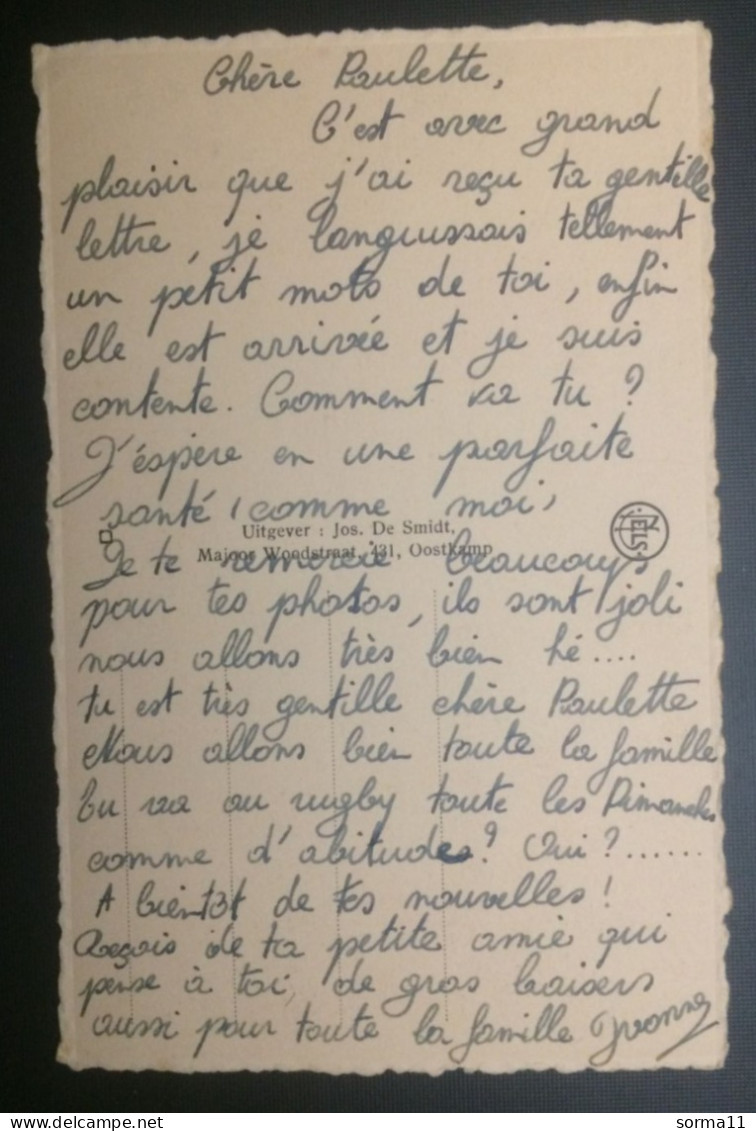 Chère Paulette,
C'est avec grand
plaisir que j'ai reçu ta gentille
lettre, je languissais tellement
un petit mots de toi, enfin
elle est arrivée et je suis
contente. Comment va tu ?
J'éspère en une parfaite
santé, comme moi,
Uitgever : Jos. De Smidt,
NELS
Majoor Woodstraat, 431, Oostkamp
Je te remercie beaucoups
pour tes photos, ils sont joli
nous allons très bien hé....
tu est très gentille chère Paulette
Nous allons bien toute la famille
tu va au rugby toute les Dimanches
comme d'abitudes? Oui ?......
A bientôt de tes nouvelles !
Reçois de ta petite amie qui
pense à toi, de gros baisers
aussi pour toute la famille Yvonne
sorma11